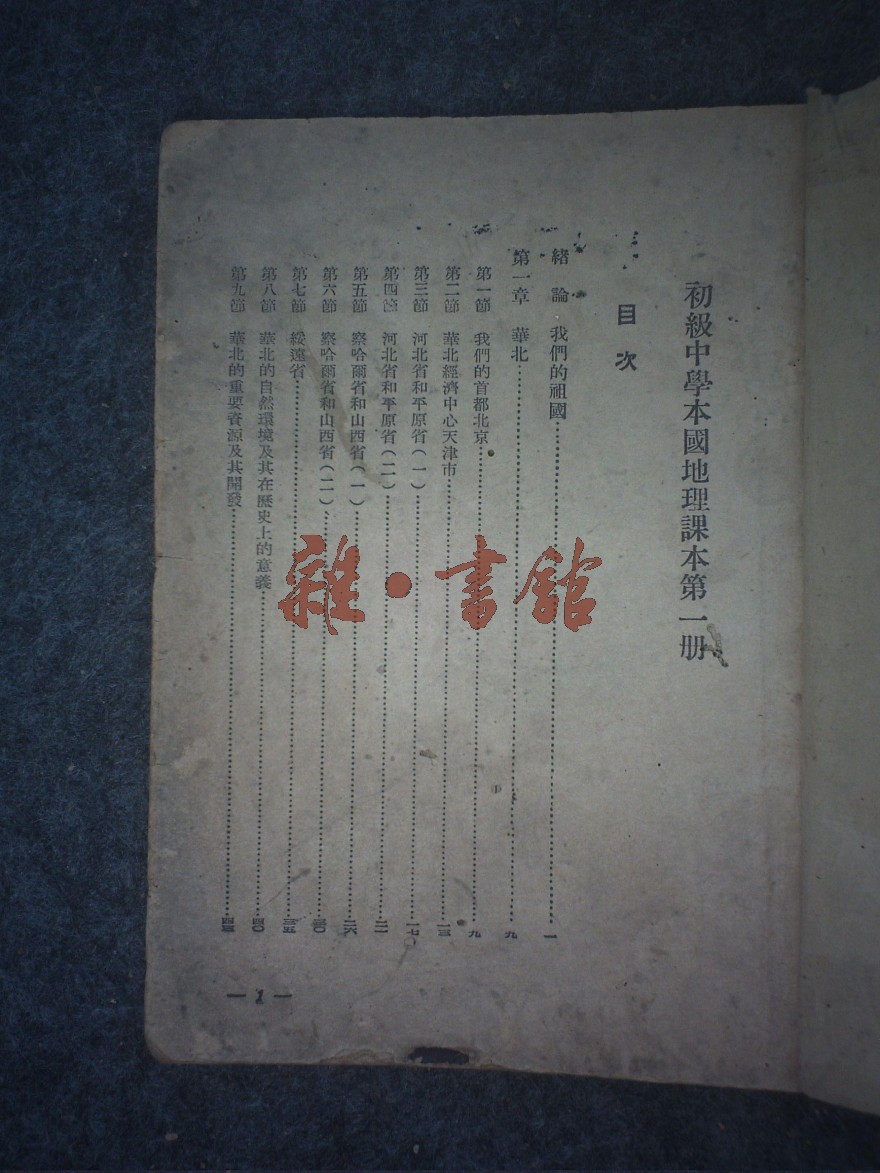 初級中學本國地理課本第一册
目次
緒論 我們的祖國……一
第一章 華北……九
第一節 我們的首都北京……九
第二節 華北經濟中心天津市……一三
第三節 河北省和平原省(一)……一七
第四節 河北省和平原省(二)……二一
第五節 察哈爾省和山西省(一)……二六
第六節 察哈爾省和山西省(二)……三〇
第七節 綏遠省……三五
第八節 華北的自然環境及其在歷史上的意義……四〇
第九節 華北的重要資源及其開發……四三
— 1 —
雜·書館